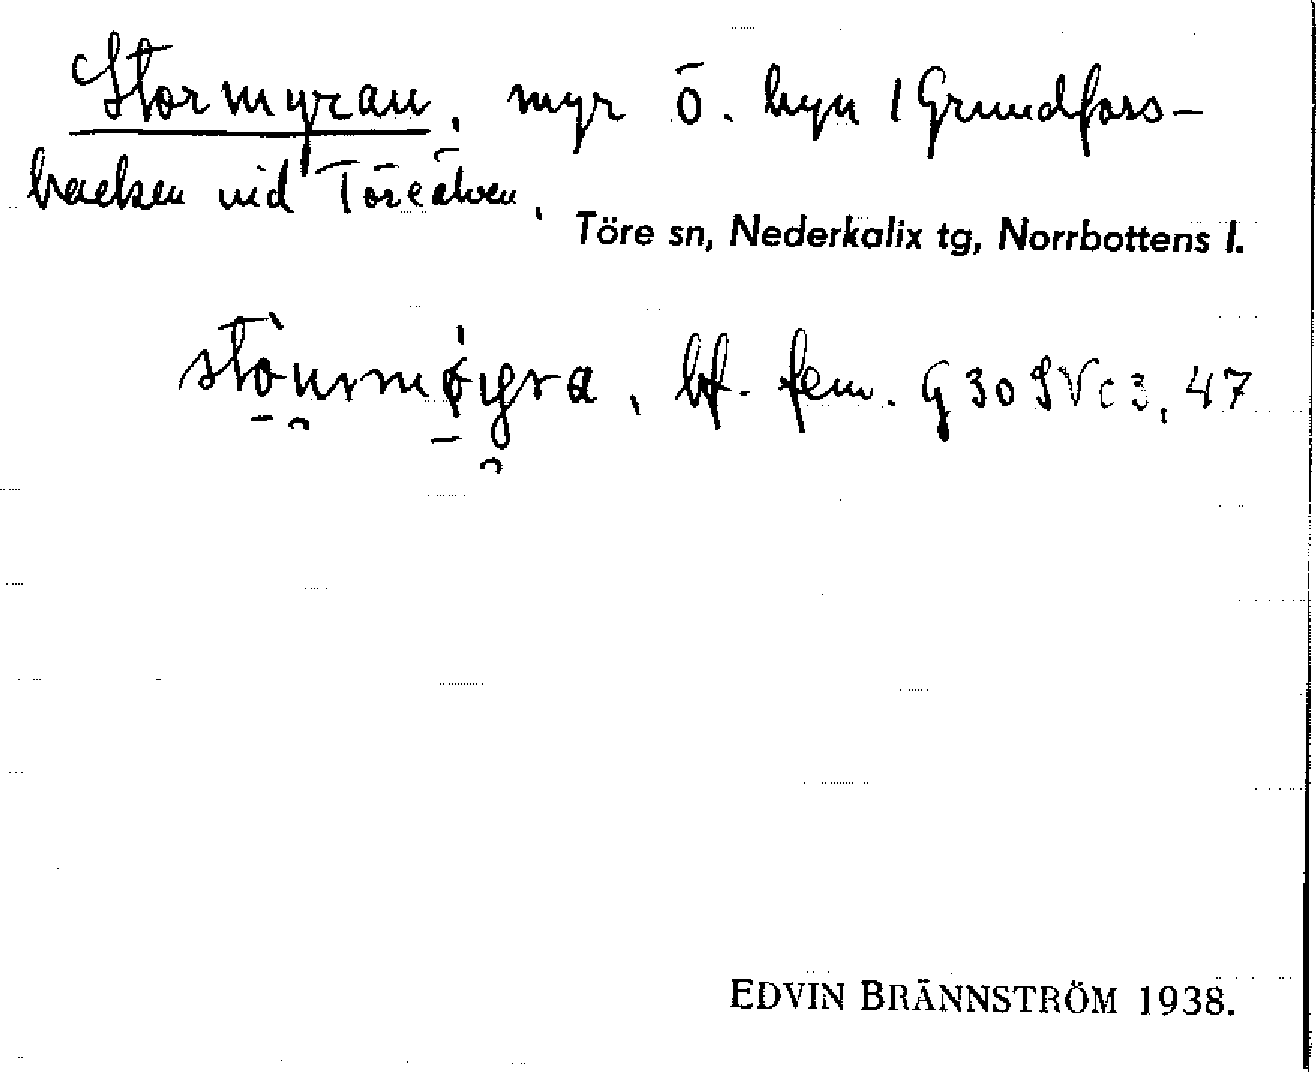 Stormyran, myr ö. byn / Grundfors-
backen vid Töreälven.
Töre sn, Nederkalix tg, Norrbottens l.
bf. fem. G 30 SV c 3, 47
EDVIN BRÄNNSTRÖM 1938.